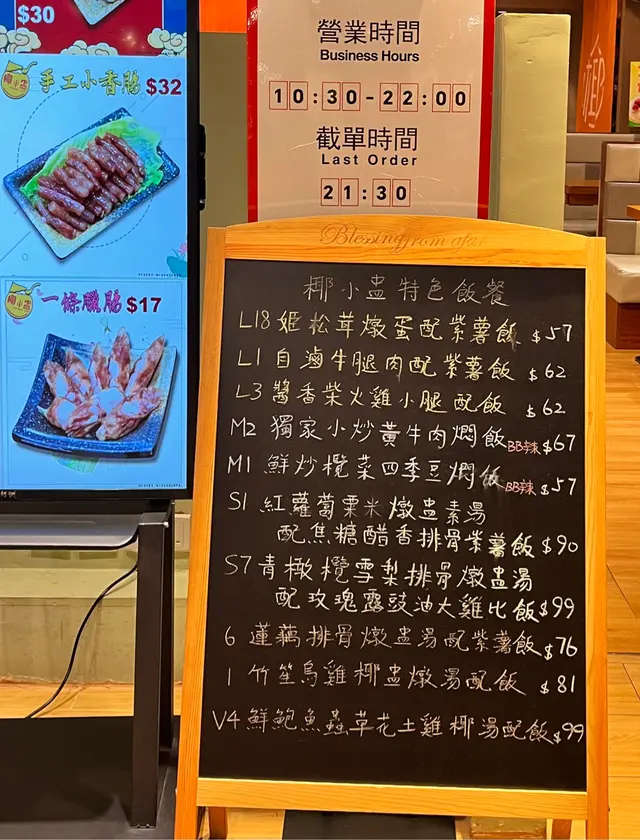 $30
椰小盅
手工小香腸 $32
椰小盅
一條臘腸 $17
營業時間
Business Hours
10:30-22:00
截單時間
Last Order
21:30
Blessing from afar
椰小盅特色飯餐
L18 姬松茸燉蛋配紫薯飯 $57
L1 自滷牛腿肉配紫薯飯 $62
L3 醬香柴火雞小腿配飯 $62
M2 獨家小炒黃牛肉燜飯 BB辣 $67
M1 鮮炒欖菜四季豆燜飯 BB辣 $57
S1 紅蘿蔔粟米燉盅素湯
配焦糖醋香排骨紫薯飯 $90
S7 青橄欖雪梨排骨燉盅湯
配玫瑰露豉油大雞比飯 $99
6 蓮藕排骨燉盅湯配紫薯飯 $76
1 竹笙烏雞椰盅燉湯配飯 $81
V4 鮮鮑魚蟲草花土雞椰湯配飯 $99